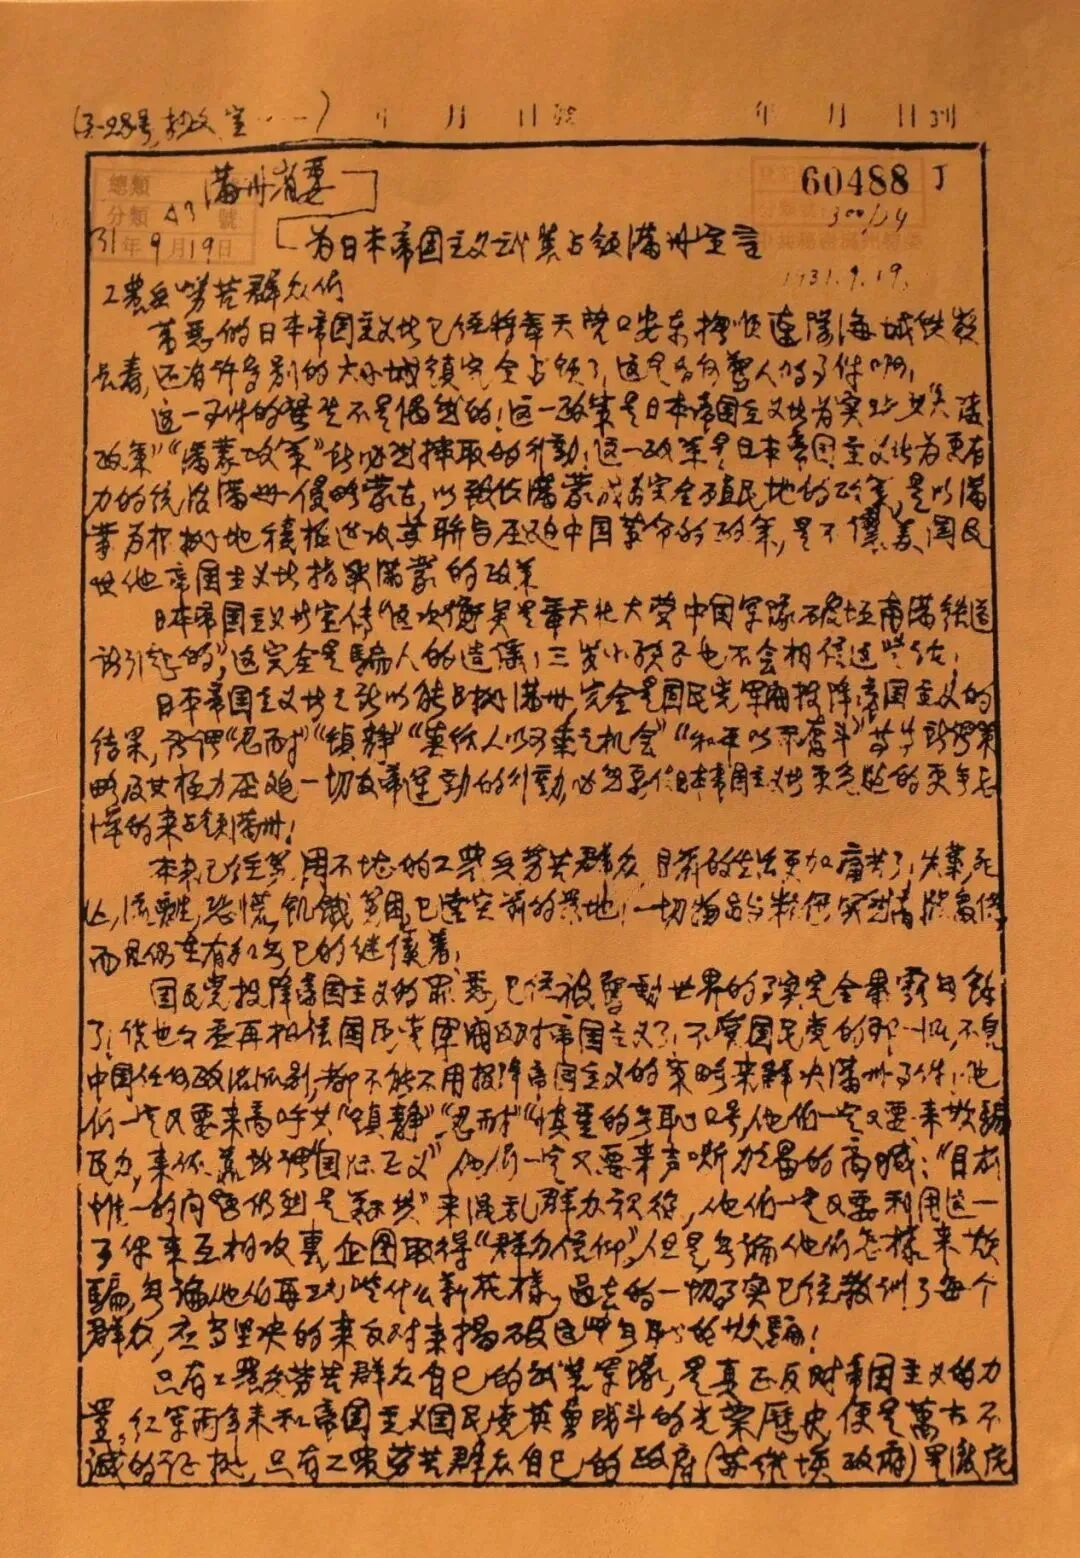 年 月 日 年 月 日到
总類
分類 43 號
31年9月19日
满州省委
60488 J
300/14
1931.9.19.
为日本帝国主义武装占领满州宣言
工農兵劳苦群众们
萬惡的日本帝国主义者已经将奉天營口安东撫顺遼陽海城铁嶺
長春,还有许多别的大小城鎮完全占领了,这是多么驚人的事件啊!
这一事件的發生不是偶然的!这一政策是日本帝国主义者为实现大陸
政策""满蒙政策"所必然採取的行動!这一政策是日本帝国主义者为更有
力的统治满州侵略蒙古,以致使满蒙成为完全殖民地的政策,是以满
蒙为根據地積極进攻苏联与压迫中国革命的政策,是不讓美国及
其他帝国主义者指染满蒙的政策
日本帝国主义者宣传"这次衝突是奉天北大营中国军隊破坏南满铁道
所引起的",这完全是騙人的造谣,三岁小孩子也不会相信这些话!
日本帝国主义者之所以能占据满州,完全是国民党军阀投降帝国主义的
结果,所谓"忍耐""镇静""莫给人以可乘之机会""和平以示奋斗"等等的策
略及其極力压迫一切反帝運動的行動,必然要使日本帝国主义者更急进的更無忌
惮的来占领满州!
本来已经穷困不堪的工農兵劳苦群众,目前的生活更加痛苦了,失業死
亡,流離,恐慌,飢餓貧困,已達空前的景地!一切物品与粮食突然高涨
而且仍在有加無已的继续着!
国民党投降帝国主义的罪惡,已经被驚動世界的事实完全暴露無餘
了!谁也不要再相信国民党军阀反对帝国主义了!不管国民党的那一派,不管
中国任何政治派别,都不能不用投降帝国主义的策略来解决满州事件!他
们一定又要来高呼其"镇静""忍耐""慎重"的無耻口号,他们一定又要来欺騙
民众,来依靠所谓"国际正义"他们一定又要来声嘶力竭的高喊:"目前
惟一的问题仍然是剿共"来混乱群众视線,他们一定又要利用这一
事件来互相攻裏,企图取得"群众信仰",但是無論他们怎樣来欺
騙,無論他们再玩些什么新花樣,过去的一切事实已经教训了每个
群众,应当坚决的来反对来揭破这些無耻的欺騙!
只有工農兵劳苦群众自己的武装军隊,是真正反对帝国主义的力
量,红军两年来和帝国主义国民党英勇战斗的光荣歷史便是萬古不
滅的证据,只有工農劳苦群众自己的政府(苏维埃政府)是徹底